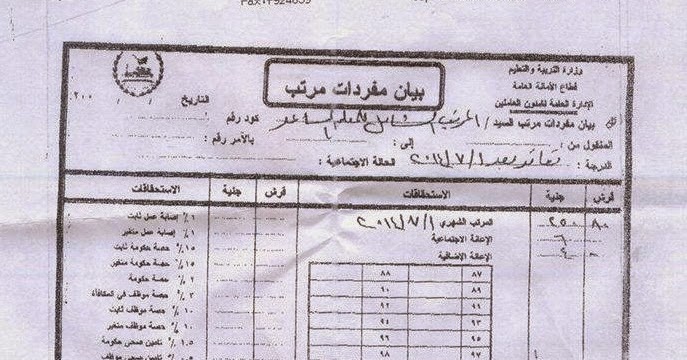 Fax:+924659
وزارة التربية والتعليم
قطاع الأمانة العامة
الإدارة العامة لشئون العاملين
بيان مفردات مرتب
التاريخ / / ٢٠٠
بيان مفردات مرتب السيد / المرتب الشامل للمعلم المساعد كود رقم :
المنقول من : إلى : بالأمر رقم :
الدرجة : تعاقد بعد ٢٠١٤/٧/١ الحالة الاجتماعية :
قرش جنية الاستحقاقات قرش جنية الاستحقاقات
٨٠ ٢٥٠ المرتب الشهري ٢٠١٤/٧/١ ١٪ إصابة عمل ثابت
٦ الإعانة الاجتماعية ١٪ إصابة عمل متغير
٤ الإعانة الإضافية ١٥٪ حصة حكومة ثابت
٨٧ ٨٨ ١٥٪ حصة حكومة متغير
٨٩ ٩٠ ٢٪ حصة حكومة
٩١ ٩٢ ٣٪ حصة موظف في المكافأة
٩٣ ٩٤ ١٠٪ حصة موظف ثابت
٩٥ ٩٦ ١٠٪ حصة موظف متغير
٩٧ ٩٨ تامين صحي حكومة
تامين صحي موظف